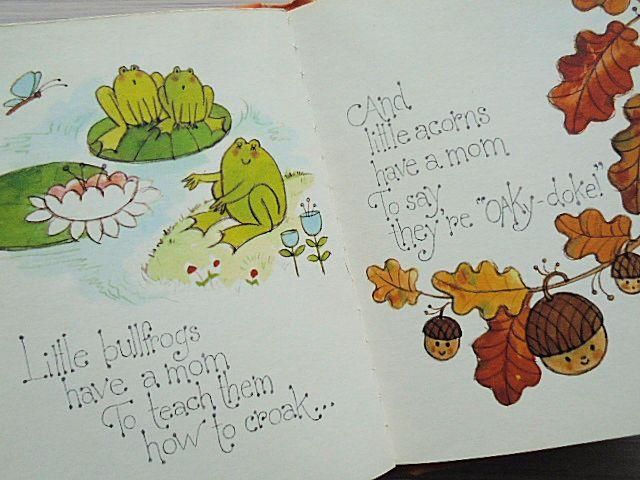 Little bullfrogs
have a mom
To teach them
how to croak...
And
little acorns
have a mom
To say
they're "OAKy-doke!"